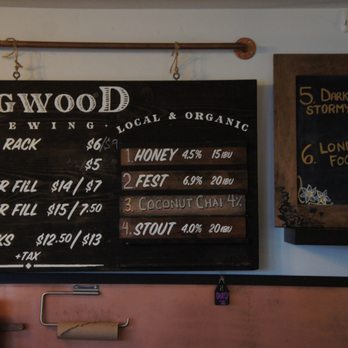 GWOOD
EWING
LOCAL & ORGANIC
RACK $6/$9
$5
R FILL $14/$7
R FILL $15/7.50
KS $12.50/$13
+TAX
1. HONEY 4.5% 15 IBU
2. FEST 6.9% 20 IBU
3. COCONUT CHAI 4%
4. STOUT 4.0% 20 IBU
5. DARK
STORMY
6. LON
FO